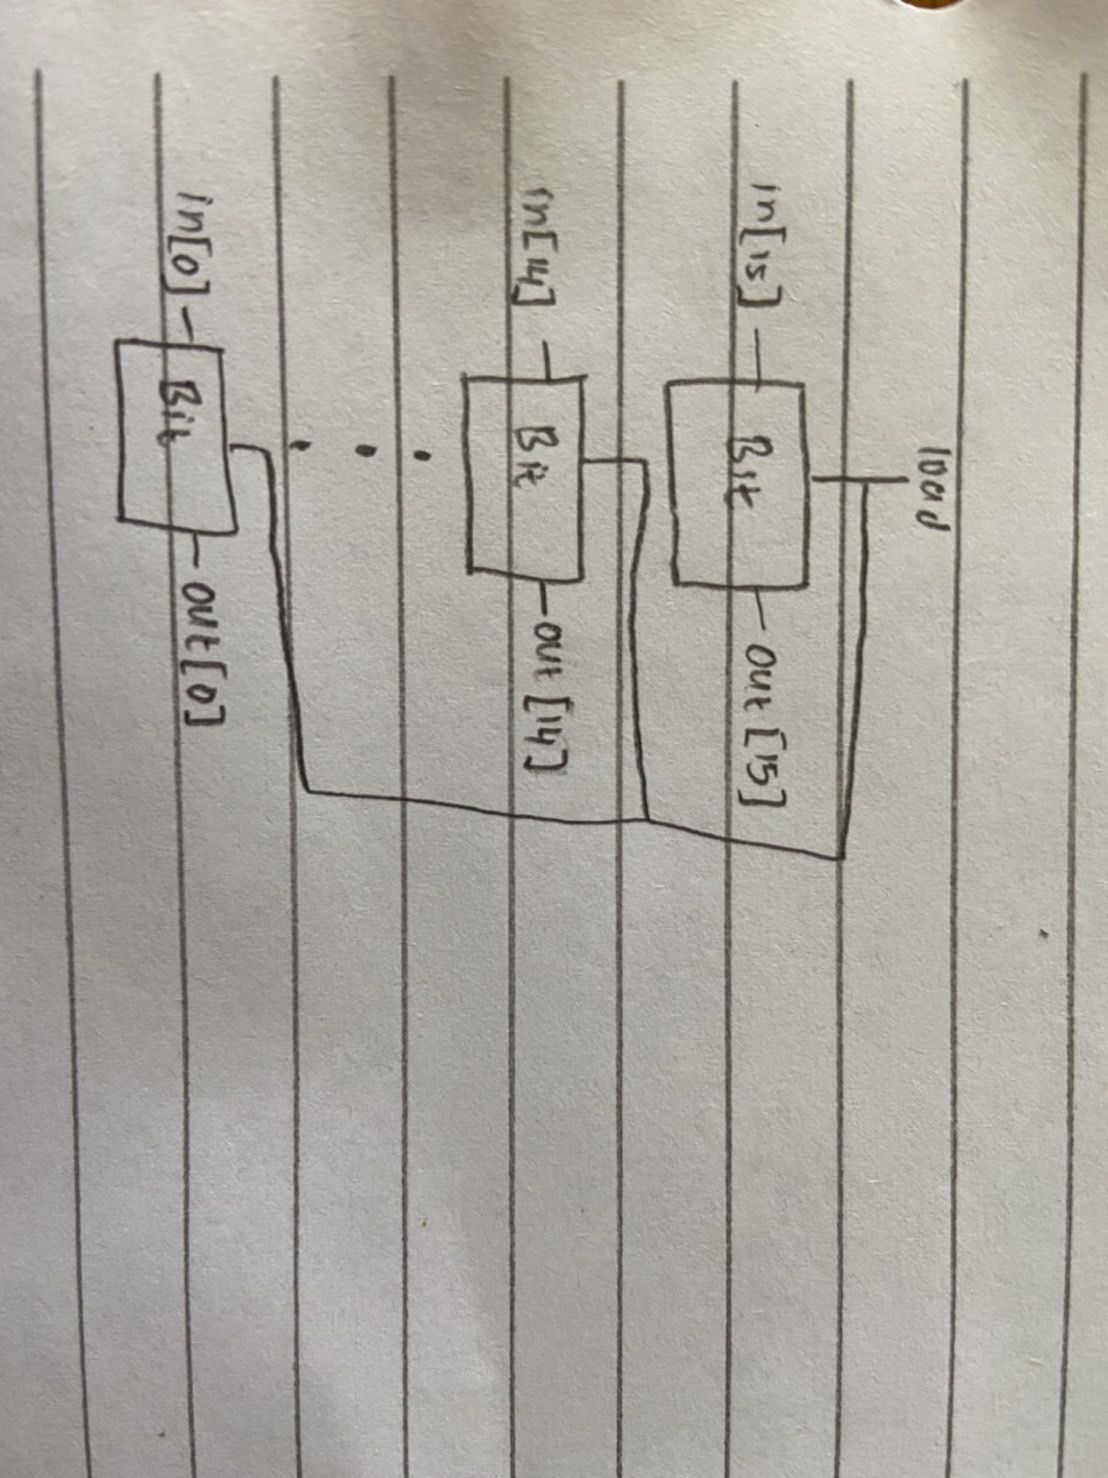 load
in[15] Bit out[15]
in[14] Bit out[14]
in[0] Bit out[0]